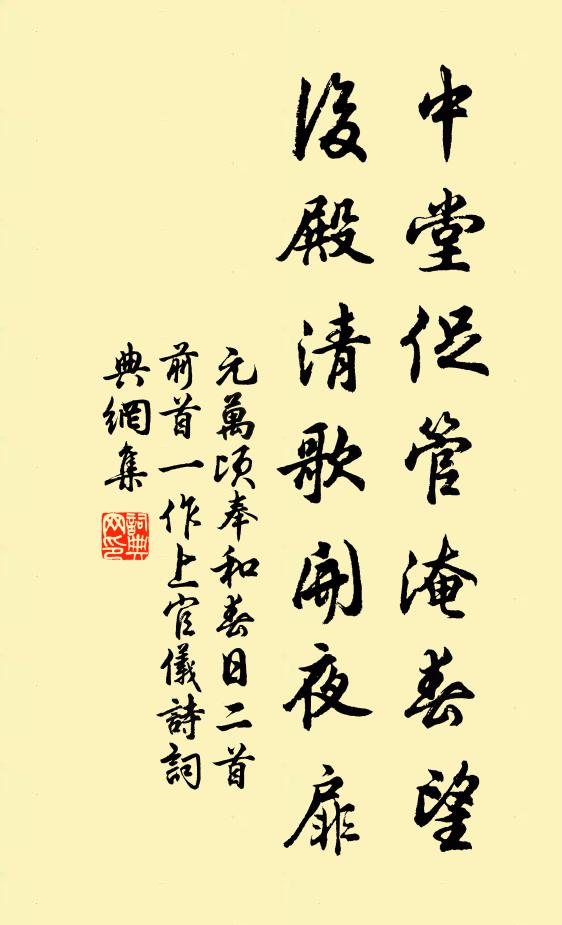 中堂促管淹春望
後殿清歌開夜扉
元萬頃奉和春日二首
前首一作上官儀詩詞
典網集
詞典
网印